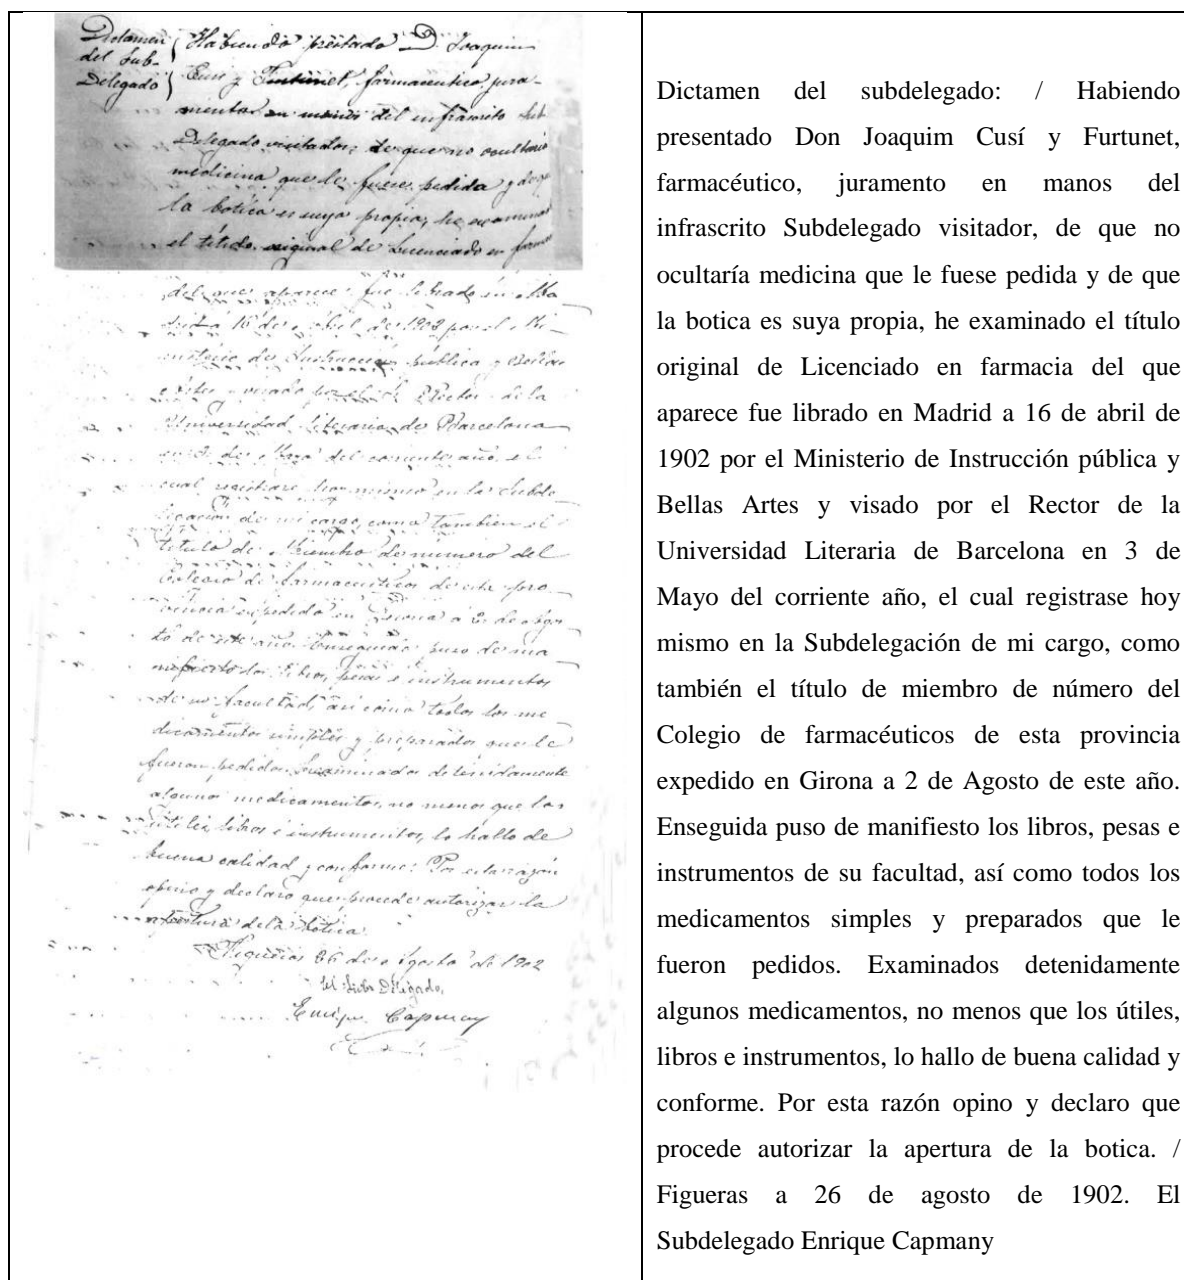 Dictamen
del Sub-
Delegado
Habiendo prestado D. Joaquin
Cusi y Furtunet, farmaceutico, jura-
mento en manos del infrascrito Sub-
Delegado visitador, de que no ocultaria
medicina que le fuere pedida y de que
la botica es suya propia, he examinado
el titulo original de Licenciado en farmacia
del que aparece fue librado en Ma
drid á 16 de Abril de 1902 por el Mi-
nisterio de Instruccion publica y Bellas
Artes y visado por el Rector de la
Universidad Literaria de Barcelona
en 3 de Mayo del corriente año, el
cual registrare hoy mismo en la Subde
legacion de mi cargo, como tambien el
titulo de Miembro de numero del
Colegio de farmaceuticos de esta pro-
vincia expedido en Gerona a 2 de Agos-
to de este año. Enseguida puso de ma
nifiesto los libros, pesas e instrumentos
de su facultad, asi como todos los me
dicamentos simples y preparados que le
fueron pedidos. Examinados detenidamente
algunos medicamentos, no menos que los
utiles, libros é instrumentos, lo hallo de
buena calidad y conforme. Por esta razon
opino y declaro que procede autorizar la
apertura de la botica.
Figueras 26 de Agosto de 1902
El Sub Delegado,
Enrique Capmany
Dictamen del subdelegado: / Habiendo
presentado Don Joaquim Cusí y Furtunet,
farmacéutico, juramento en manos del
infrascrito Subdelegado visitador, de que no
ocultaría medicina que le fuese pedida y de que
la botica es suya propia, he examinado el título
original de Licenciado en farmacia del que
aparece fue librado en Madrid a 16 de abril de
1902 por el Ministerio de Instrucción pública y
Bellas Artes y visado por el Rector de la
Universidad Literaria de Barcelona en 3 de
Mayo del corriente año, el cual registrase hoy
mismo en la Subdelegación de mi cargo, como
también el título de miembro de número del
Colegio de farmacéuticos de esta provincia
expedido en Girona a 2 de Agosto de este año.
Enseguida puso de manifiesto los libros, pesas e
instrumentos de su facultad, así como todos los
medicamentos simples y preparados que le
fueron pedidos. Examinados detenidamente
algunos medicamentos, no menos que los útiles,
libros e instrumentos, lo hallo de buena calidad y
conforme. Por esta razón opino y declaro que
procede autorizar la apertura de la botica. /
Figueras a 26 de agosto de 1902. El
Subdelegado Enrique Capmany